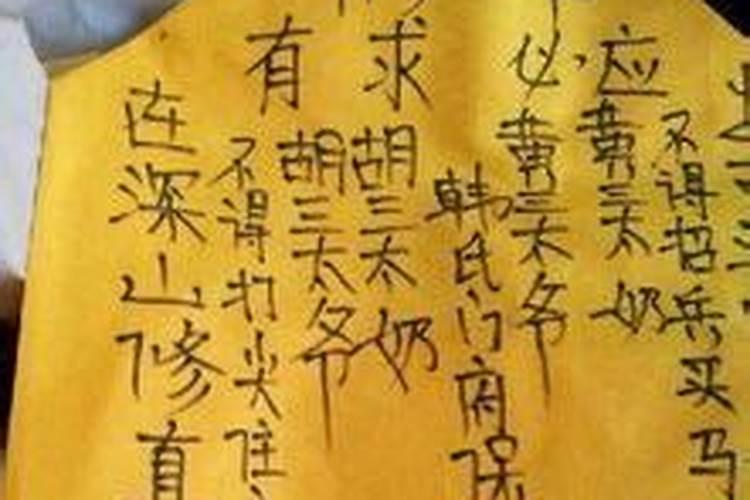 有求必应
不得招兵买马
黄三太奶
黄三太爷
韩氏门府保
胡三太奶
胡三太爷
不得打尖住
在深山修